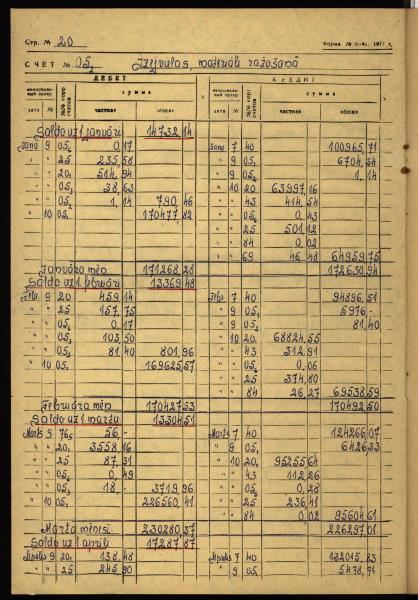 Стр. № 20 Форма № п-4а, 1977 г.
СЧЕТ № 05₂ Izejvielas, materiāli ražošanā
ДЕБЕТ КРЕДИТ
мемориальный ордер №№ кор. счетов сумма мемориальный ордер №№ кор. счетов сумма
дата № частная общая дата № частная общая
Saldo uz 1 janvāri 14732,14
Janv 9 05₁ 0,17 Janv 7 40 100965,71
" " 25 235,58 " 9 05₁ 6704,34
" " 20₁ 514,94 " 9 05₂ 1,14
" " 05₃ 38,63 " 10 20 63997,16
" " 05₂ 1,14 790,46 " " 43 414,54
" 10 05₁ 170477,82 " " 05₆ 0,43
" " 25 501,12
" " 84 0,02
" " 69 46,48 64959,75
Janvāra mēn 171268,28 172630,94
Saldo uz 1 februāri 13369,48
Febr. 9 20 459,14 Febr 7 40 94896,51
" " 25 157,75 " 9 05₁ 5976,-
" " 05₁ 0,17 " 9 05₂ 81,40
" " 05₃ 103,50 " 10 20 68824,55
" " 05₂ 81,40 801,96 " " 43 312,91
" 10 05₁ 169625,57 " " 05₆ 0,06
" " 25 374,80
" " 84 26,27 69538,59
Februāra mēn 170427,53 170492,50
Saldo uz 1 martu 13304,51
Marts 9 76₅ 56,- Marts 7 40 124266,07
" " 20₁ 3558,16 " 9 05₁ 6426,33
" " 25 87,31 " 10 20 95255,64
" " 05₆ 0,49 " " 43 112,26
" " 05₃ 18,- 3719,96 " " 05₆ 0,28
" 10 05₁ 226560,41 " " 25 236,41
" " 84 0,02 95604,61
Marta mēnesi 230280,37 226297,01
Saldo uz 1 aprīli 17287,87
Aprīlis 9 20₁ 138,48 Aprīlis 7 40 132015,83
" " 25 245,90 " 9 05₁ 5478,71